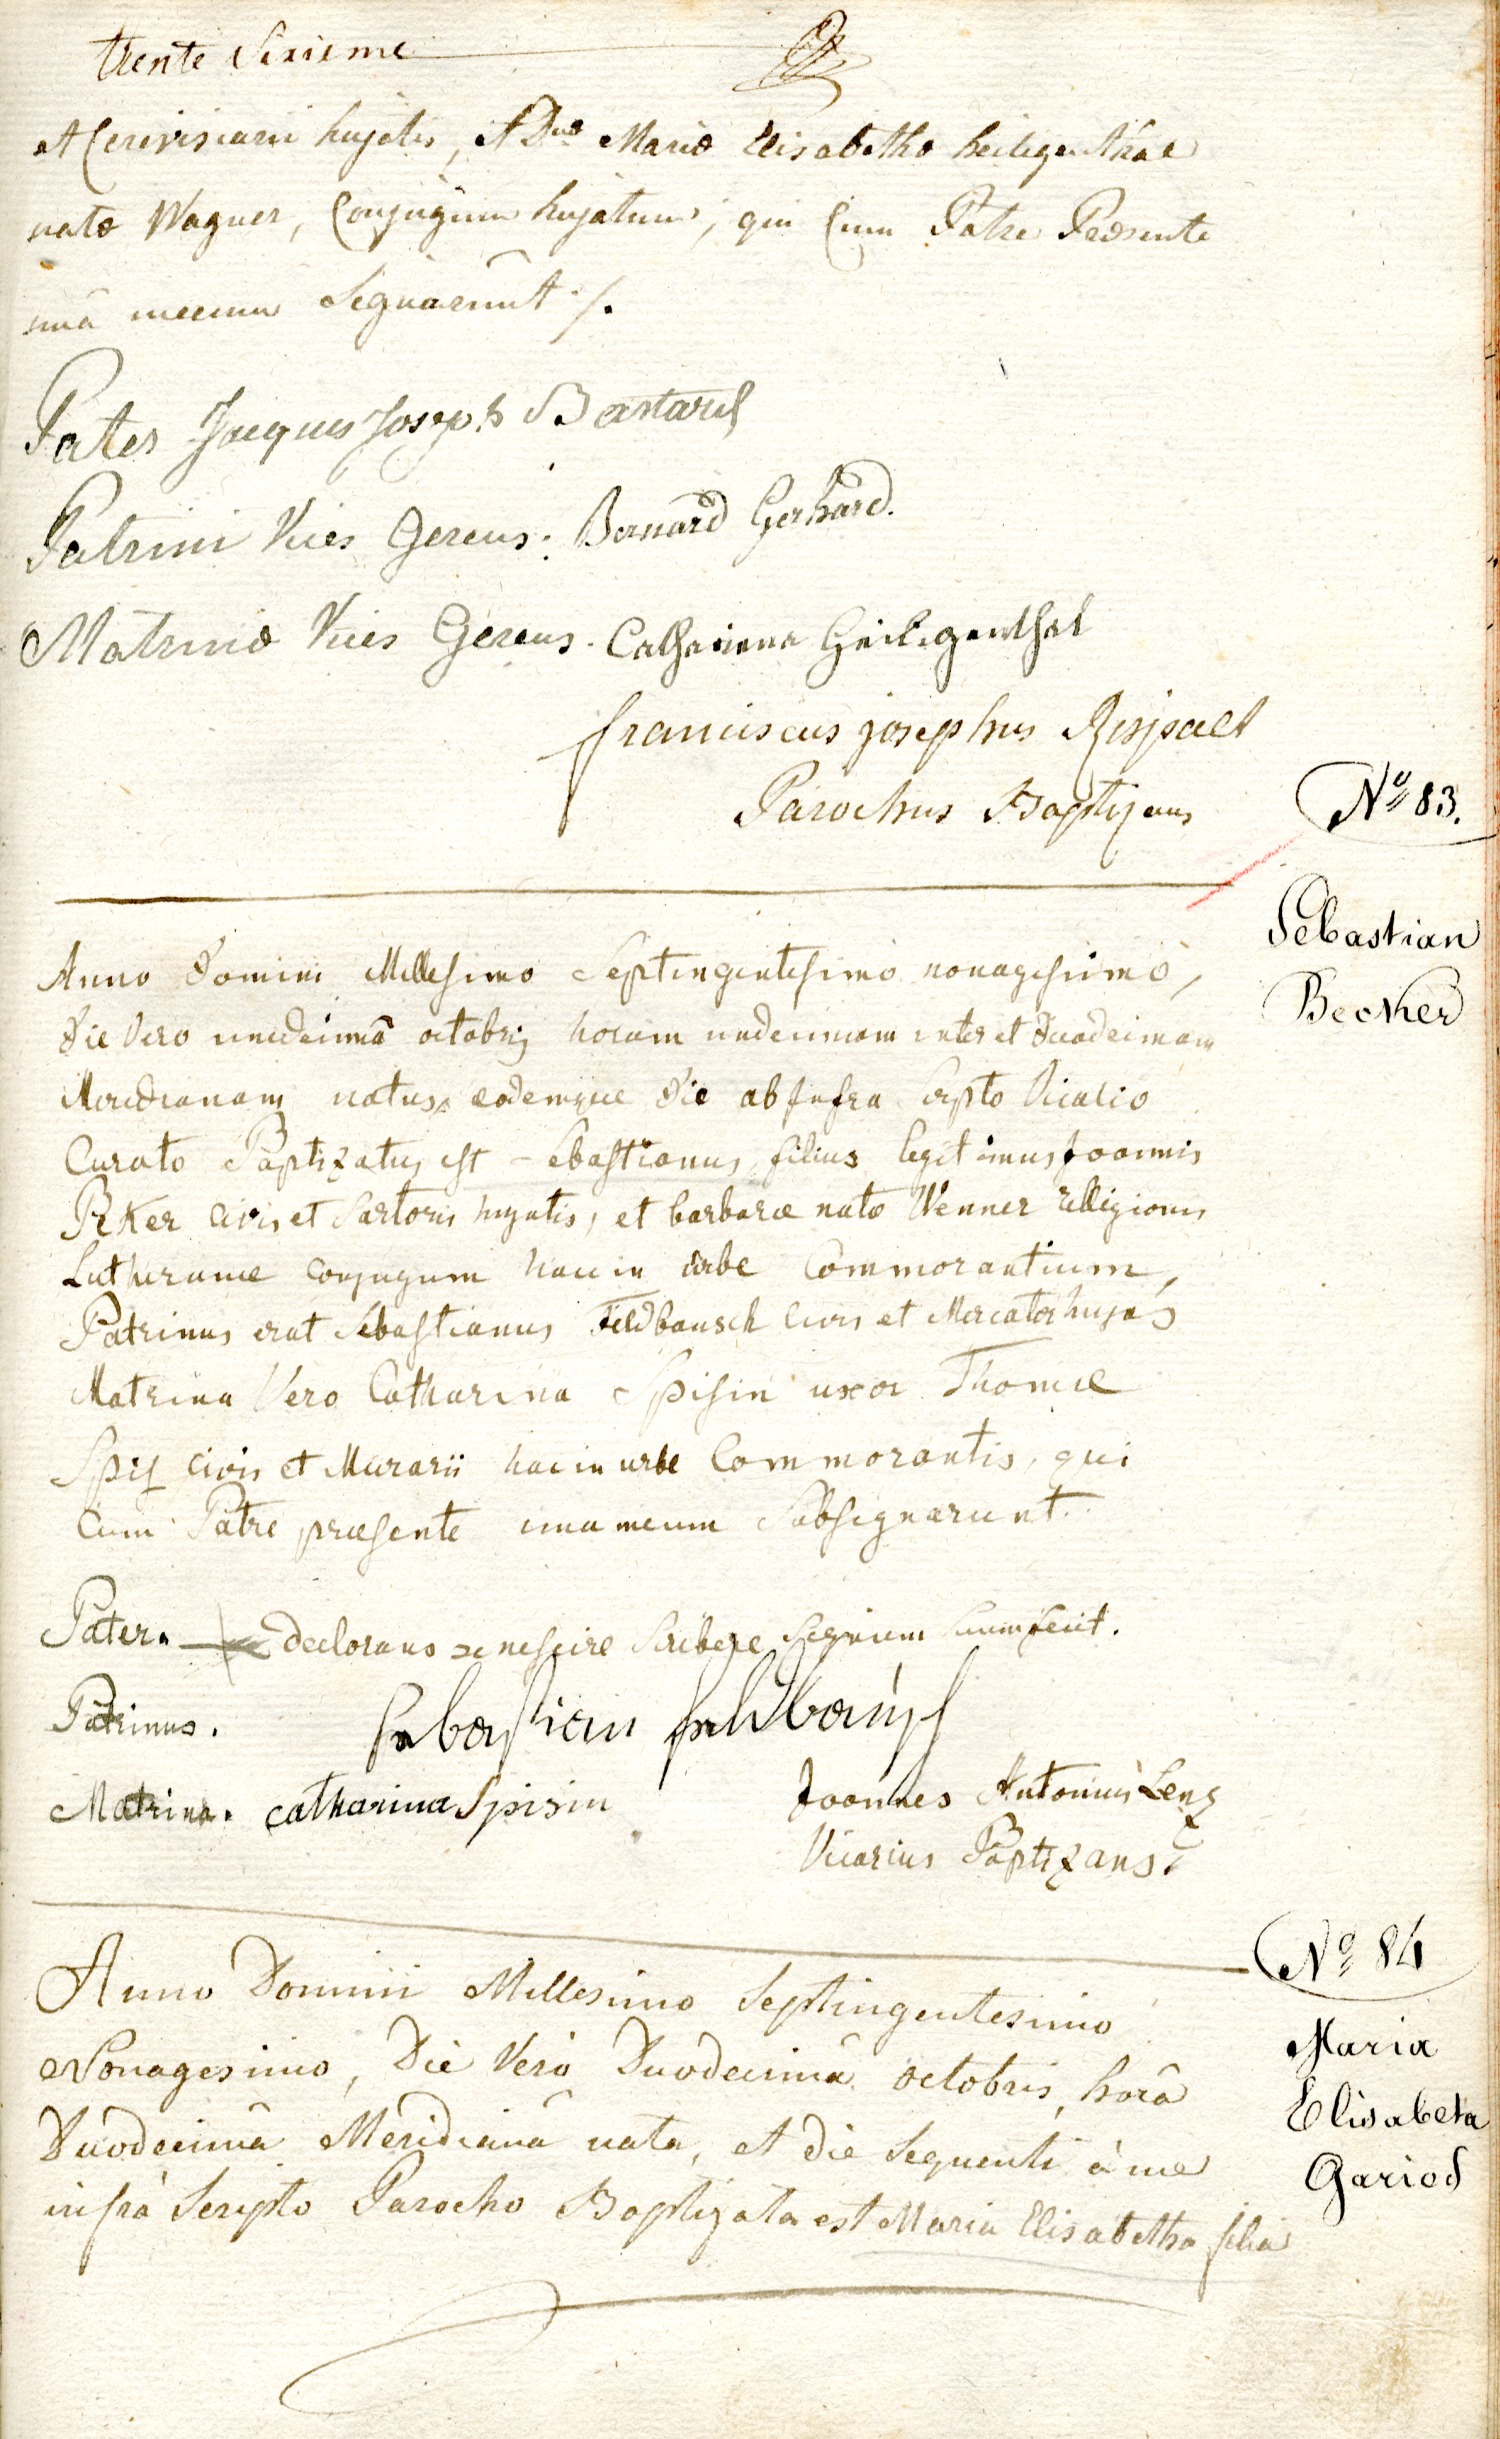 trente Sixieme
et Cerevisiarii hujatis, et Dnæ Mariæ Elisabethæ heiligenthal
natæ Wagner, Conjugum hujatum, qui Cum Patre Præsente
unà mecum Signarunt ./.
Pater Jacques Joseph Bastard
Patrini Vices Gerens: Bernard Gerhard.
Matrinæ Vices Gerens. Catharina Heiligenthal
franciscus josephus
Parochus Baptizans
No 83.
Sebastian
Becker
Anno Domini Millesimo Septingentesimo nonagesimo,
Die Vero undecimâ octobris horam undecimam inter et duodecimam
Meridianam natus, eodemque die ab Infra scripto Vicario
Curato Baptizatus est Sebastianus filius legitimus Joannis
Peker civis et Sartoris hujatis, et barbaræ natæ Wenner relligionis
Lutheranæ conjugum hac in urbe Commorantium,
Patrinus erat Sebastianus Feldbausch civis et Mercator hujas
Matrina Vero Catharina Spisin uxor Thomæ
Spis civis et Murarii hac in urbe Commorantis, qui
Cum Patre præsente una mecum Subsignarunt.
Pater. declarans se nescire scribere Signum suum fecit.
Patrinus. Sebastian feldbausch
Matrina. catharina Spisin
Joannes Antonius Lenz
Vicarius Baptizans
No 84
Maria
Elisabeta
Gariod
Anno Domini Millesimo Septingentesimo
Nonagesimo, Die Vero Duodecimâ octobris, horâ
Duodecimâ Meridianâ nata, et die sequenti à me
infrà Scripto Parocho Baptizata est Maria Elisabetha filia